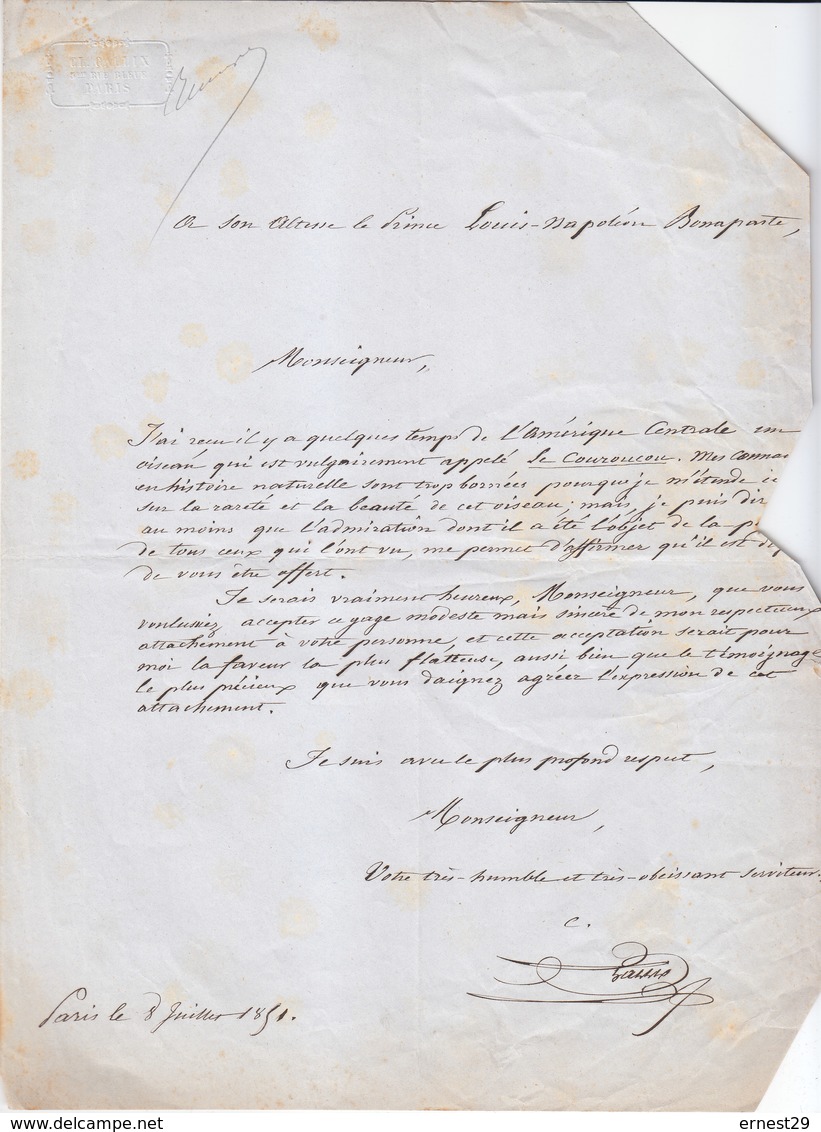 PARIS
A Son Altesse le Prince Louis-Napoléon Bonaparte,
Monseigneur,
J'ai reçu il y a quelques temps de l'Amérique Centrale un
oiseau qui est vulgairement appelé le Couroucou. Mes connai
en histoire naturelle sont trop bornées pourque je m'étende i
sur la rareté et la beauté de cet oiseau; mais, je puis dir
au moins que l'admiration dont il a été l'objet de la p
de tous ceux qui l'ont vu, me permet d'affirmer qu'il est di
de vous être offert.
Je serais vraiment heureux, Monseigneur, que vous
voulussiez accepter ce gage modeste mais sincère de mon respectueux
attachement à votre personne, et cette acceptation serait pour
moi la faveur la plus flatteuse, aussi bien que le témoignage
le plus précieux que vous daignez agréer l'expression de cet
attachement.
Je suis avec le plus profond respect,
Monseigneur,
Votre très-humble et très-obéissant serviteur.
C.
Paris le 8 Juillet 1851.
delcampe.net
ernest29